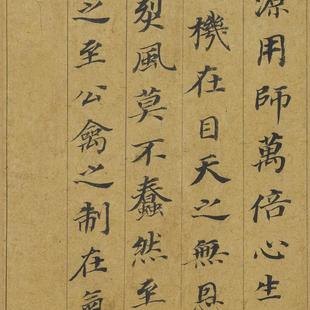 源用師萬倍心生
機在目天之無恩
烈風莫不蠢然至
之至公禽之制在氣